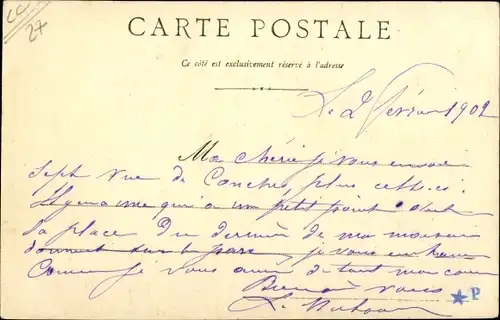 CC
27
CARTE POSTALE
Ce côté est exclusivement réservé à l'adresse
Le 2 Février 1902
Ma chérie je vous envoi
sept vue de Conches, plus cette-ci.
Il y en a une qui a un petit point c'est
la place du de ma maison
donnent sur le parc, je vous
Comme je vous aime de tout mon cœur
vous
P